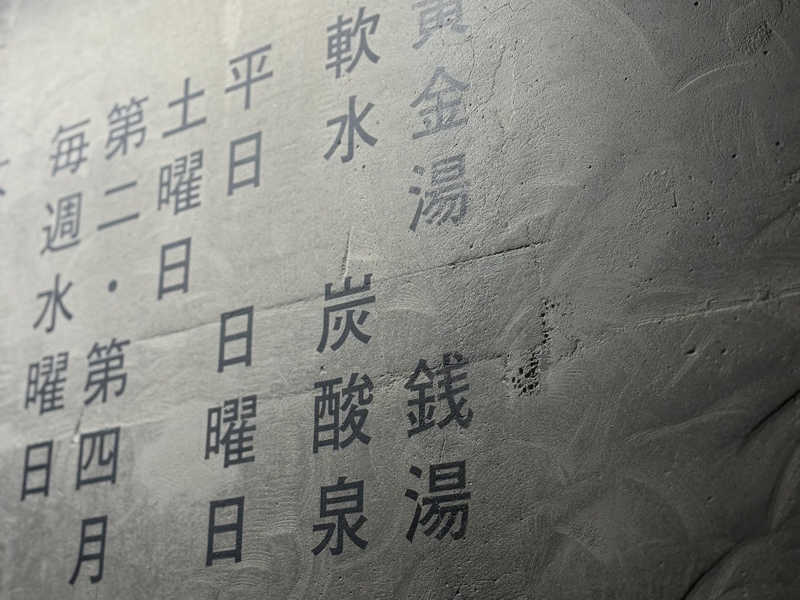 黄金湯 銭湯
軟水 炭酸泉
平日 日曜日
土曜日
第二・第四月
毎週水曜日